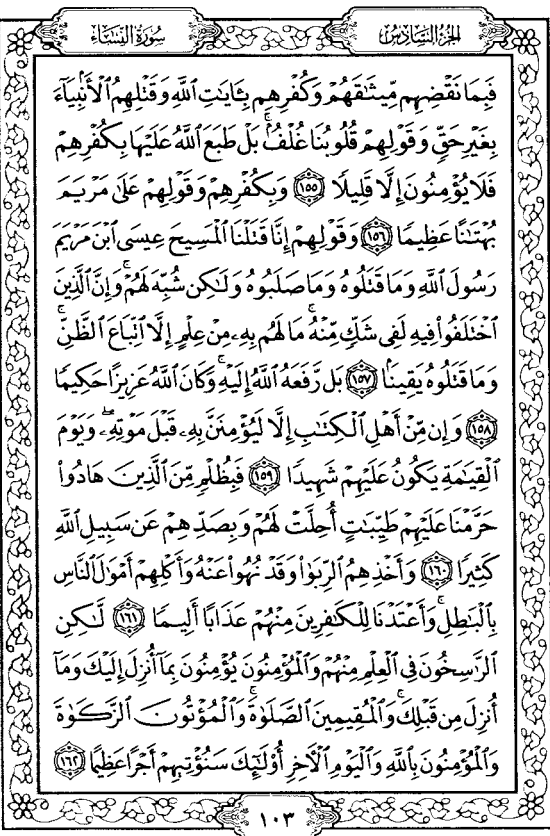 الجزء السادس
سورة النساء
فَبِمَا نَقْضِهِم مِّيثَٰقَهُمْ وَكُفْرِهِم بِـَٔايَٰتِ ٱللَّهِ وَقَتْلِهِمُ ٱلْأَنۢبِيَآءَ
بِغَيْرِ حَقٍّ وَقَوْلِهِمْ قُلُوبُنَا غُلْفٌۢ ۚ بَلْ طَبَعَ ٱللَّهُ عَلَيْهَا بِكُفْرِهِمْ
فَلَا يُؤْمِنُونَ إِلَّا قَلِيلًا ١٥٥ وَبِكُفْرِهِمْ وَقَوْلِهِمْ عَلَىٰ مَرْيَمَ
بُهْتَٰنًا عَظِيمًا ١٥٦ وَقَوْلِهِمْ إِنَّا قَتَلْنَا ٱلْمَسِيحَ عِيسَى ٱبْنَ مَرْيَمَ
رَسُولَ ٱللَّهِ وَمَا قَتَلُوهُ وَمَا صَلَبُوهُ وَلَٰكِن شُبِّهَ لَهُمْ ۚ وَإِنَّ ٱلَّذِينَ
ٱخْتَلَفُوا۟ فِيهِ لَفِى شَكٍّ مِّنْهُ ۚ مَا لَهُم بِهِۦ مِنْ عِلْمٍ إِلَّا ٱتِّبَاعَ ٱلظَّنِّ ۚ
وَمَا قَتَلُوهُ يَقِينًۢا ١٥٧ بَل رَّفَعَهُ ٱللَّهُ إِلَيْهِ ۚ وَكَانَ ٱللَّهُ عَزِيزًا حَكِيمًا
١٥٨ وَإِن مِّنْ أَهْلِ ٱلْكِتَٰبِ إِلَّا لَيُؤْمِنَنَّ بِهِۦ قَبْلَ مَوْتِهِۦ ۖ وَيَوْمَ
ٱلْقِيَٰمَةِ يَكُونُ عَلَيْهِمْ شَهِيدًا ١٥٩ فَبِظُلْمٍ مِّنَ ٱلَّذِينَ هَادُوا۟
حَرَّمْنَا عَلَيْهِمْ طَيِّبَٰتٍ أُحِلَّتْ لَهُمْ وَبِصَدِّهِمْ عَن سَبِيلِ ٱللَّهِ
كَثِيرًا ١٦٠ وَأَخْذِهِمُ ٱلرِّبَوٰا۟ وَقَدْ نُهُوا۟ عَنْهُ وَأَكْلِهِمْ أَمْوَٰلَ ٱلنَّاسِ
بِٱلْبَٰطِلِ ۚ وَأَعْتَدْنَا لِلْكَٰفِرِينَ مِنْهُمْ عَذَابًا أَلِيمًا ١٦١ لَّٰكِنِ
ٱلرَّٰسِخُونَ فِى ٱلْعِلْمِ مِنْهُمْ وَٱلْمُؤْمِنُونَ يُؤْمِنُونَ بِمَآ أُنزِلَ إِلَيْكَ وَمَآ
أُنزِلَ مِن قَبْلِكَ ۚ وَٱلْمُقِيمِينَ ٱلصَّلَوٰةَ ۚ وَٱلْمُؤْتُونَ ٱلزَّكَوٰةَ
وَٱلْمُؤْمِنُونَ بِٱللَّهِ وَٱلْيَوْمِ ٱلْـَٔاخِرِ أُو۟لَٰٓئِكَ سَنُؤْتِيهِمْ أَجْرًا عَظِيمًا ١٦٢
١٠٣